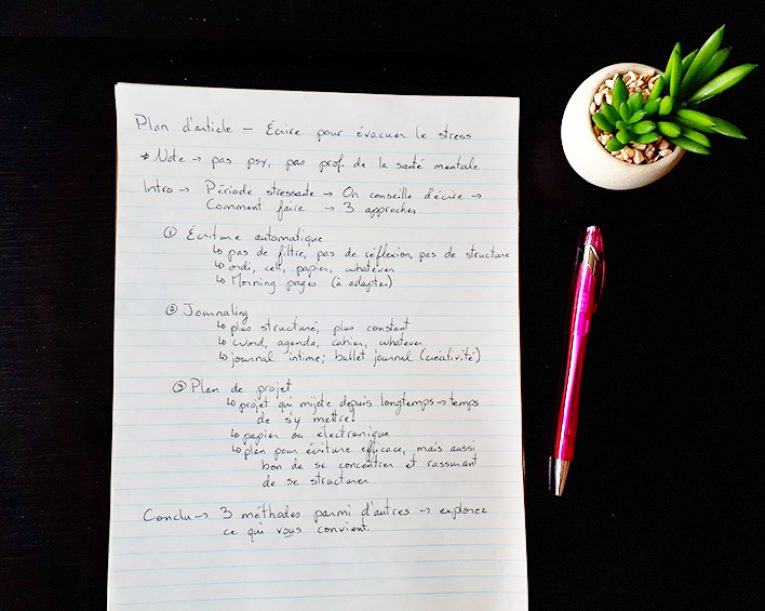 Plan d'article – Écrire pour évacuer le stress
* Note → pas psy, pas prof. de la santé mentale
Intro → Période stressante → On conseille d'écrire →
Comment faire → 3 approches
① Écriture automatique
↳ pas de filtre, pas de réflexion, pas de structure
↳ ordi, cell, papier, whatever
↳ Morning pages (à adapter)
② Journaling
↳ plus structuré, plus constant
↳ word, agenda, cahier, whatever
↳ journal intime; bullet journal (créativité)
③ Plan de projet
↳ projet qui mijote depuis longtemps → temps
de s'y mettre!
↳ papier ou électronique
↳ plan pour écriture efficace, mais aussi
bon de se concentrer et rassurant
de se structurer
Conclu → 3 méthodes parmi d'autres → explorez
ce qui vous convient.